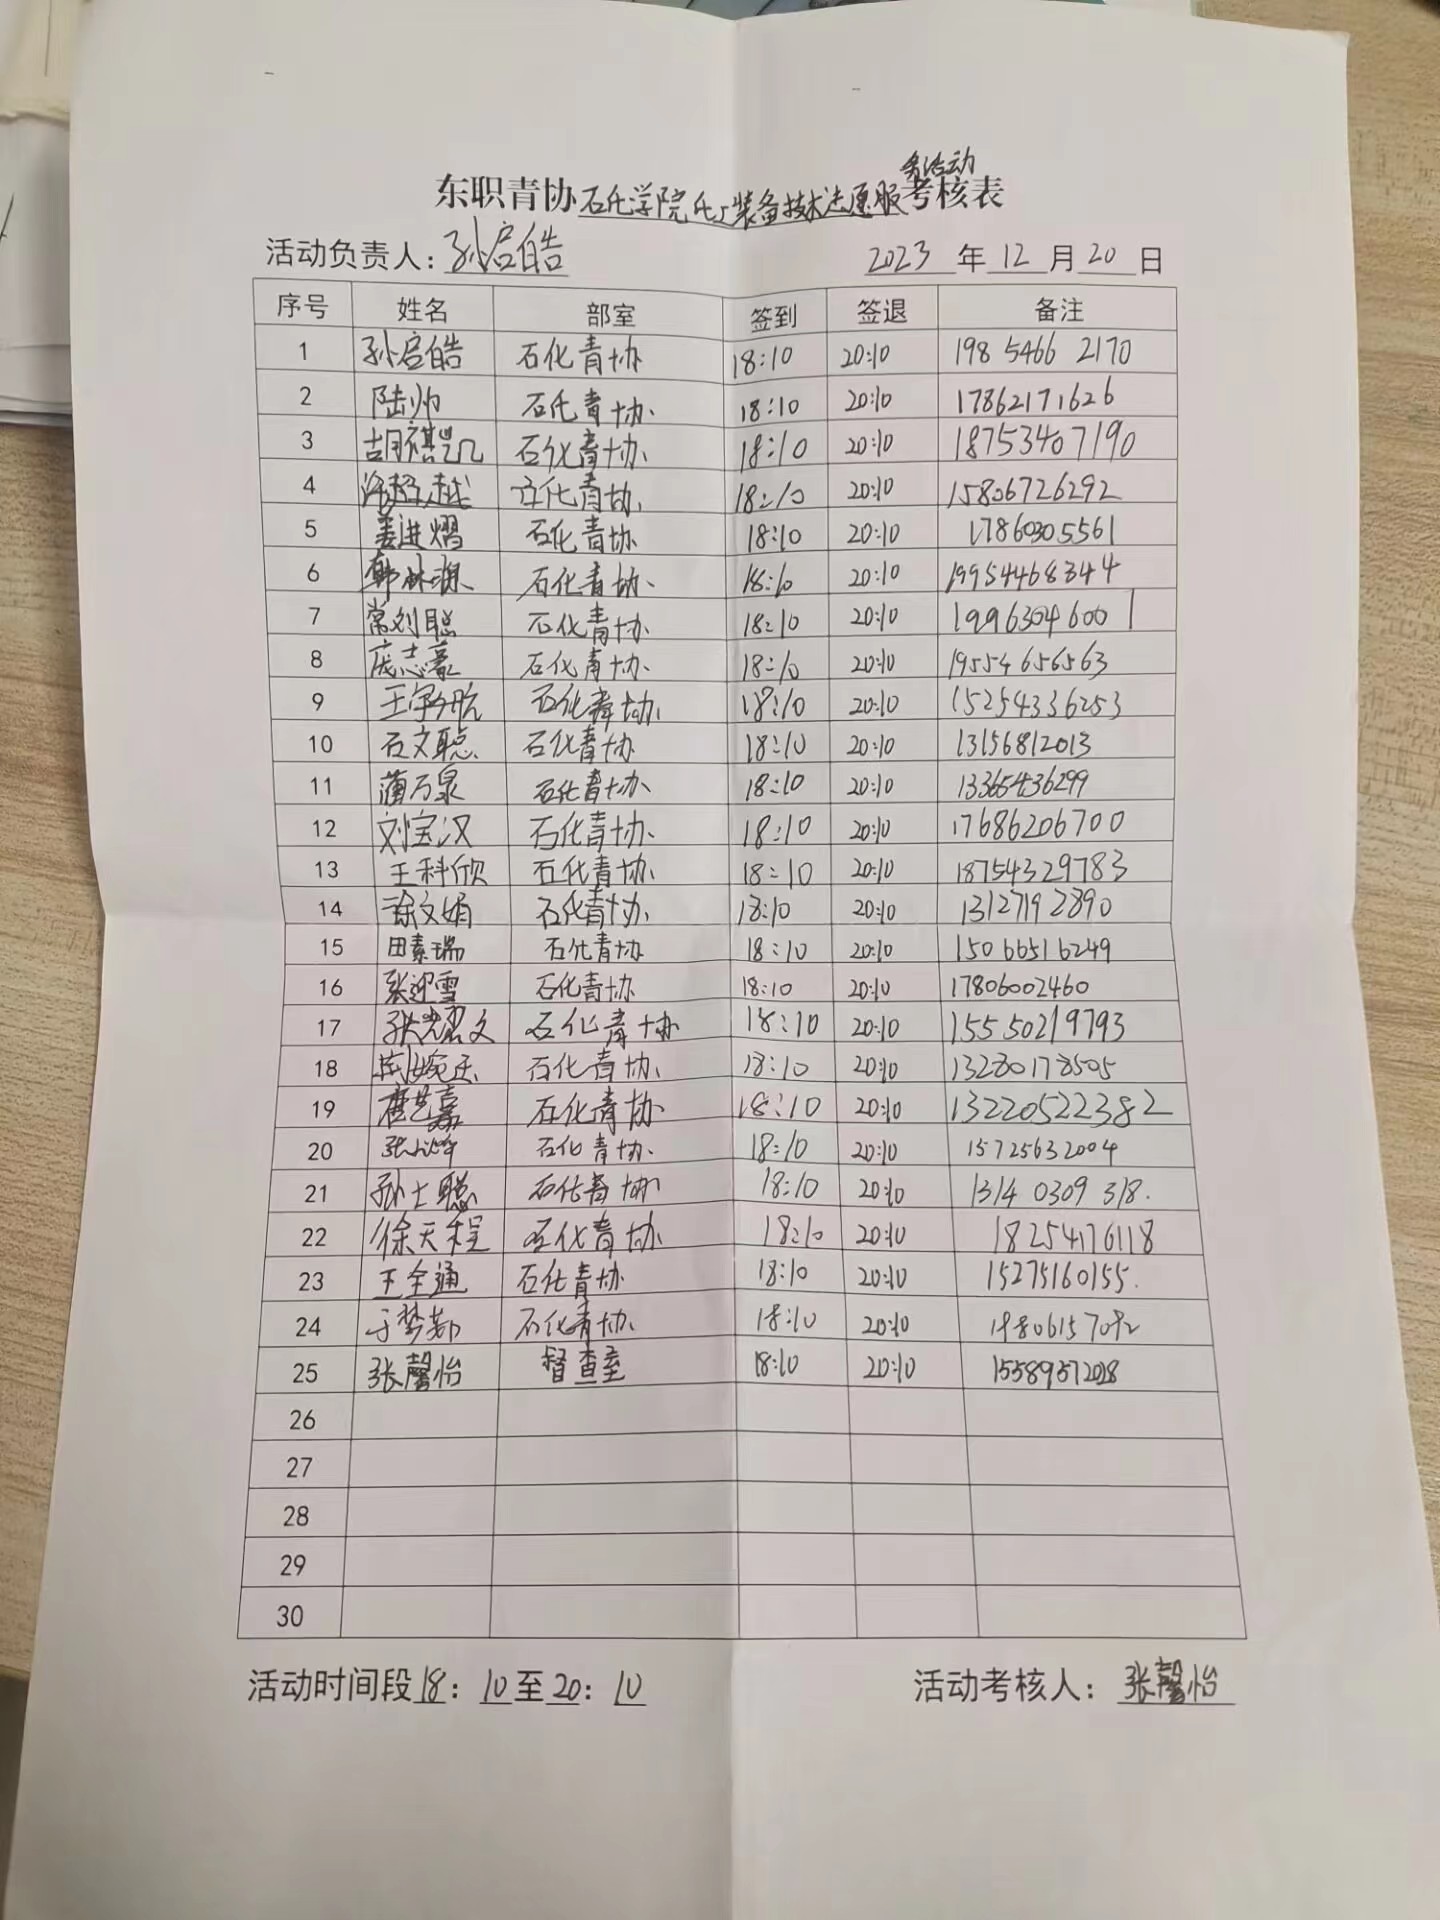 务活动
东职青协石化学院化工装备技术志愿服考核表
活动负责人：孙启皓 2023年12月20日
序号 姓名 部室 签到 签退 备注
1 孙启皓 石化青协 18:10 20:10 198 5466 2170
2 陆帅 石化青协 18:10 20:10 17862171626
3 胡祺凯 石化青协 18:10 20:10 18753407190
4 石化青协 18:10 20:10 15806726292
5 姜进熠 石化青协 18:10 20:10 17860305561
6 韩林 石化青协 18:10 20:10 19954468344
7 常刘聪 石化青协 18:10 20:10 19963046001
8 庞志豪 石化青协 18:10 20:10 19554656563
9 王宇航 石化青协 18:10 20:10 15254336253
10 石文聪 石化青协 18:10 20:10 13156812013
11 蒲万泉 石化青协 18:10 20:10 13365436299
12 刘宝汉 石化青协 18:10 20:10 17686206700
13 王科欣 石化青协 18:10 20:10 18754329783
14 徐文娟 石化青协 18:10 20:10 13127192890
15 田素瑞 石化青协 18:10 20:10 15066516249
16 张迎雪 石化青协 18:10 20:10 17806002460
17 张光磊文 石化青协 18:10 20:10 15550219793
18 石化青协 18:10 20:10 13280178505
19 唐艺嘉 石化青协 18:10 20:10 13220522382
20 张 石化青协 18:10 20:10 15725632004
21 孙士聪 石化青协 18:10 20:10 1314 0309 318.
22 徐天程 石化青协 18:10 20:10 18254176118
23 王全通 石化青协 18:10 20:10 15275160155.
24 于梦茹 石化青协 18:10 20:10
25 张馨怡 督查室 18:10 20:10 15589572028
26
27
28
29
30
活动时间段18：10至20：10 活动考核人：张馨怡